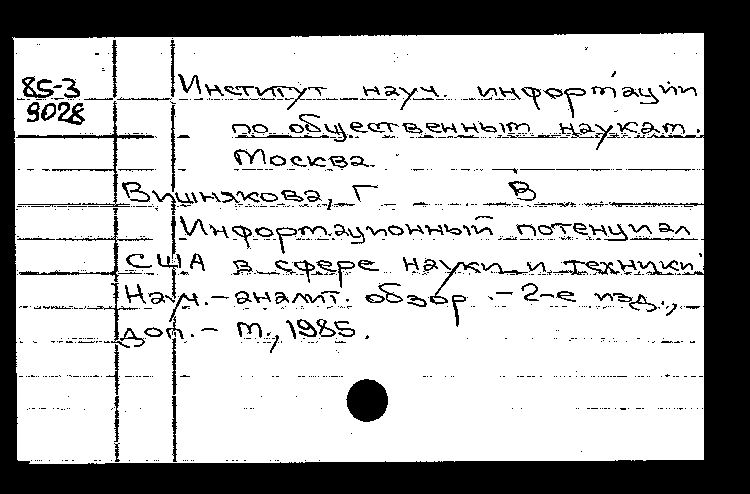 85-3
9028
Институт науч. информации
по общественным наукам.
Москва.
Вишнякова, Г В
Информационный потенциал
США в сфере науки и техники:
Науч.-аналит. обзор.-2-е изд.,
доп.-М., 1985.